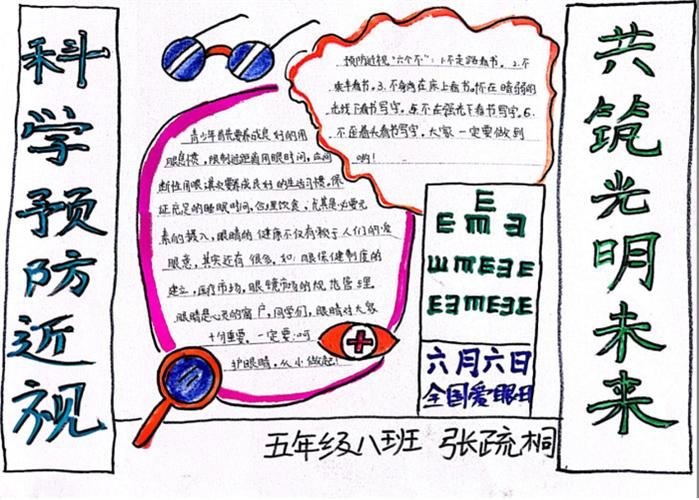 科学预防近视
预防近视“六个不”：1.不走路看书。2.不
乘车看书。3.不
光线下看书写字。5.不在强光下看书写字。6.
不歪着头看书写字。大家一定要做到
哟！
青少年首先要养成良好的用
眼习惯，限制近距离用眼时间，应间
断性用眼。其次要养成良好的生活习惯，保
证充足的睡眠时间，合理饮食，尤其是必要元
素的摄入，眼睛的健康不仅有赖于人们的爱
眼意，其实还有很多，如：眼保健制度的
建立，医疗市场，眼镜市场的规范管理。
眼睛是心灵的窗户，同学们，眼睛对大家
十分重要，一定要
护眼睛，从小做起！
E
E m Ǝ
ш m E Ǝ E
E Ǝ m E Ǝ E
六月六日
全国爱眼日
共筑光明未来
五年级八班 张疏桐